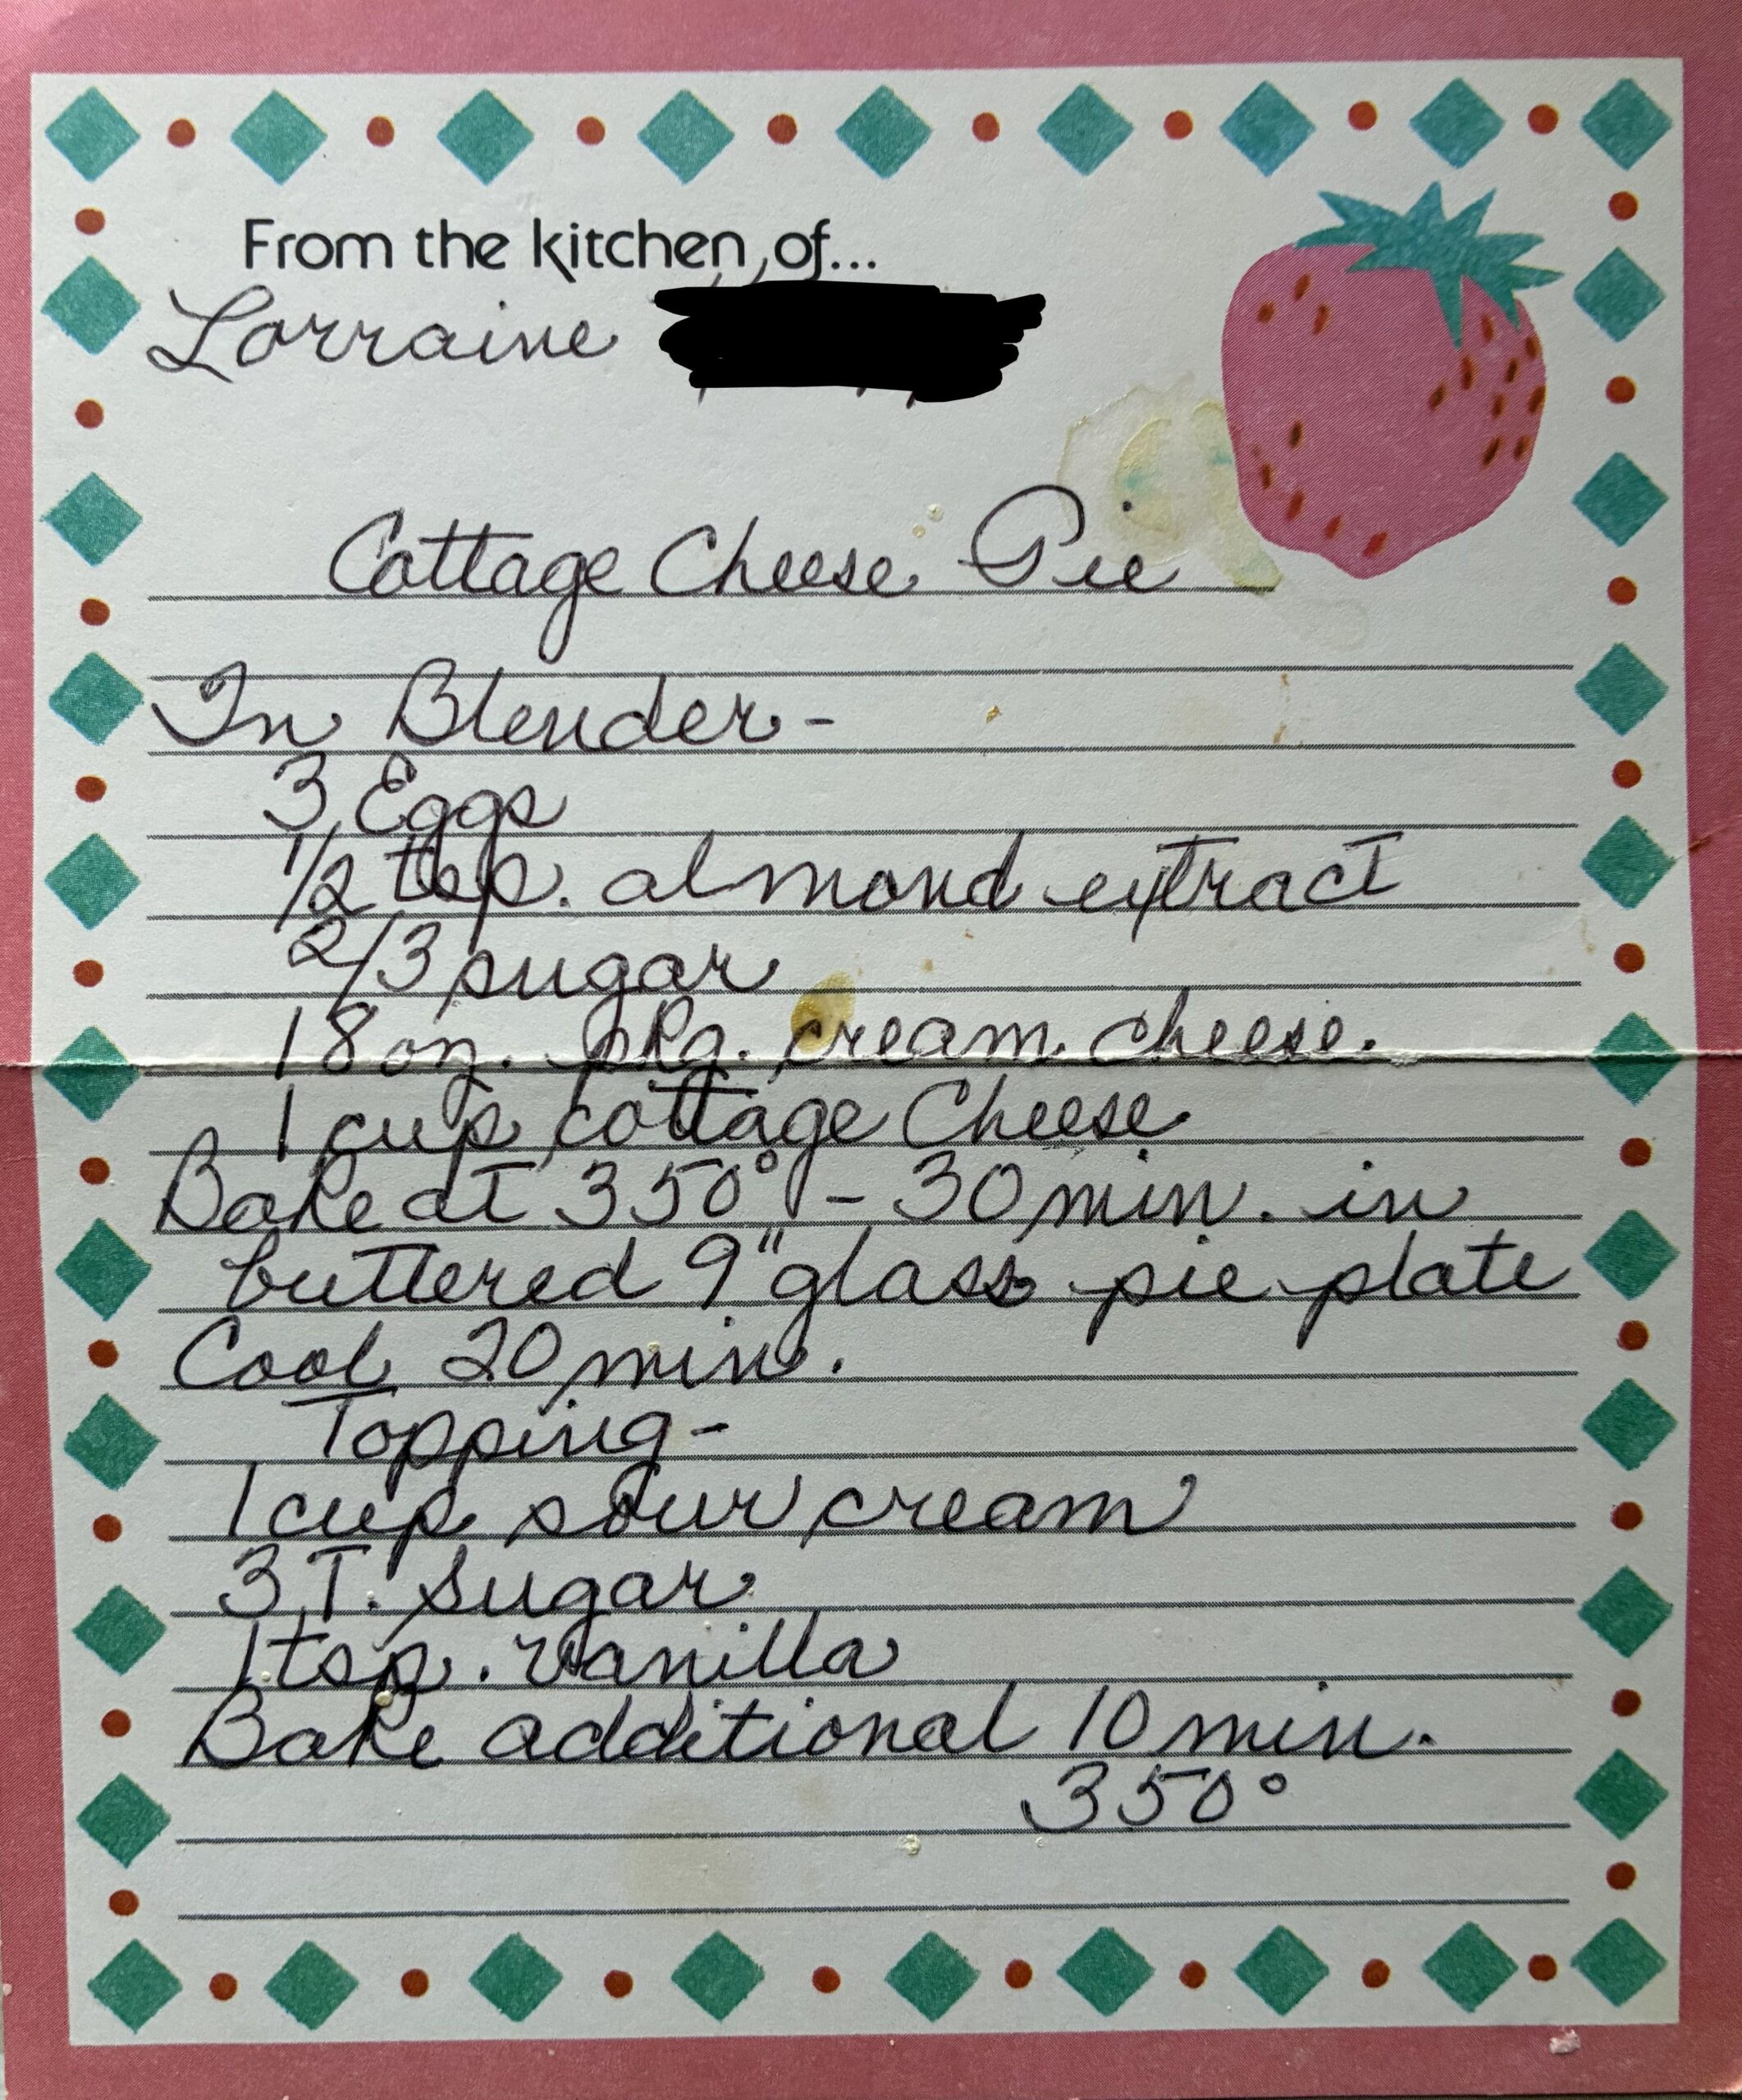 From the kitchen of...
Lorraine
Cottage Cheese Pie
In Blender -
3 Eggs
1/2 tsp. almond extract
2/3 sugar
1 8 oz. pkg. cream cheese.
1 cup cottage Cheese
Bake at 350° - 30 min. in
buttered 9" glass pie plate
Cool 20 min.
Topping -
1 cup sour cream
3 T. Sugar
1 tsp. vanilla
Bake additional 10 min.
350°